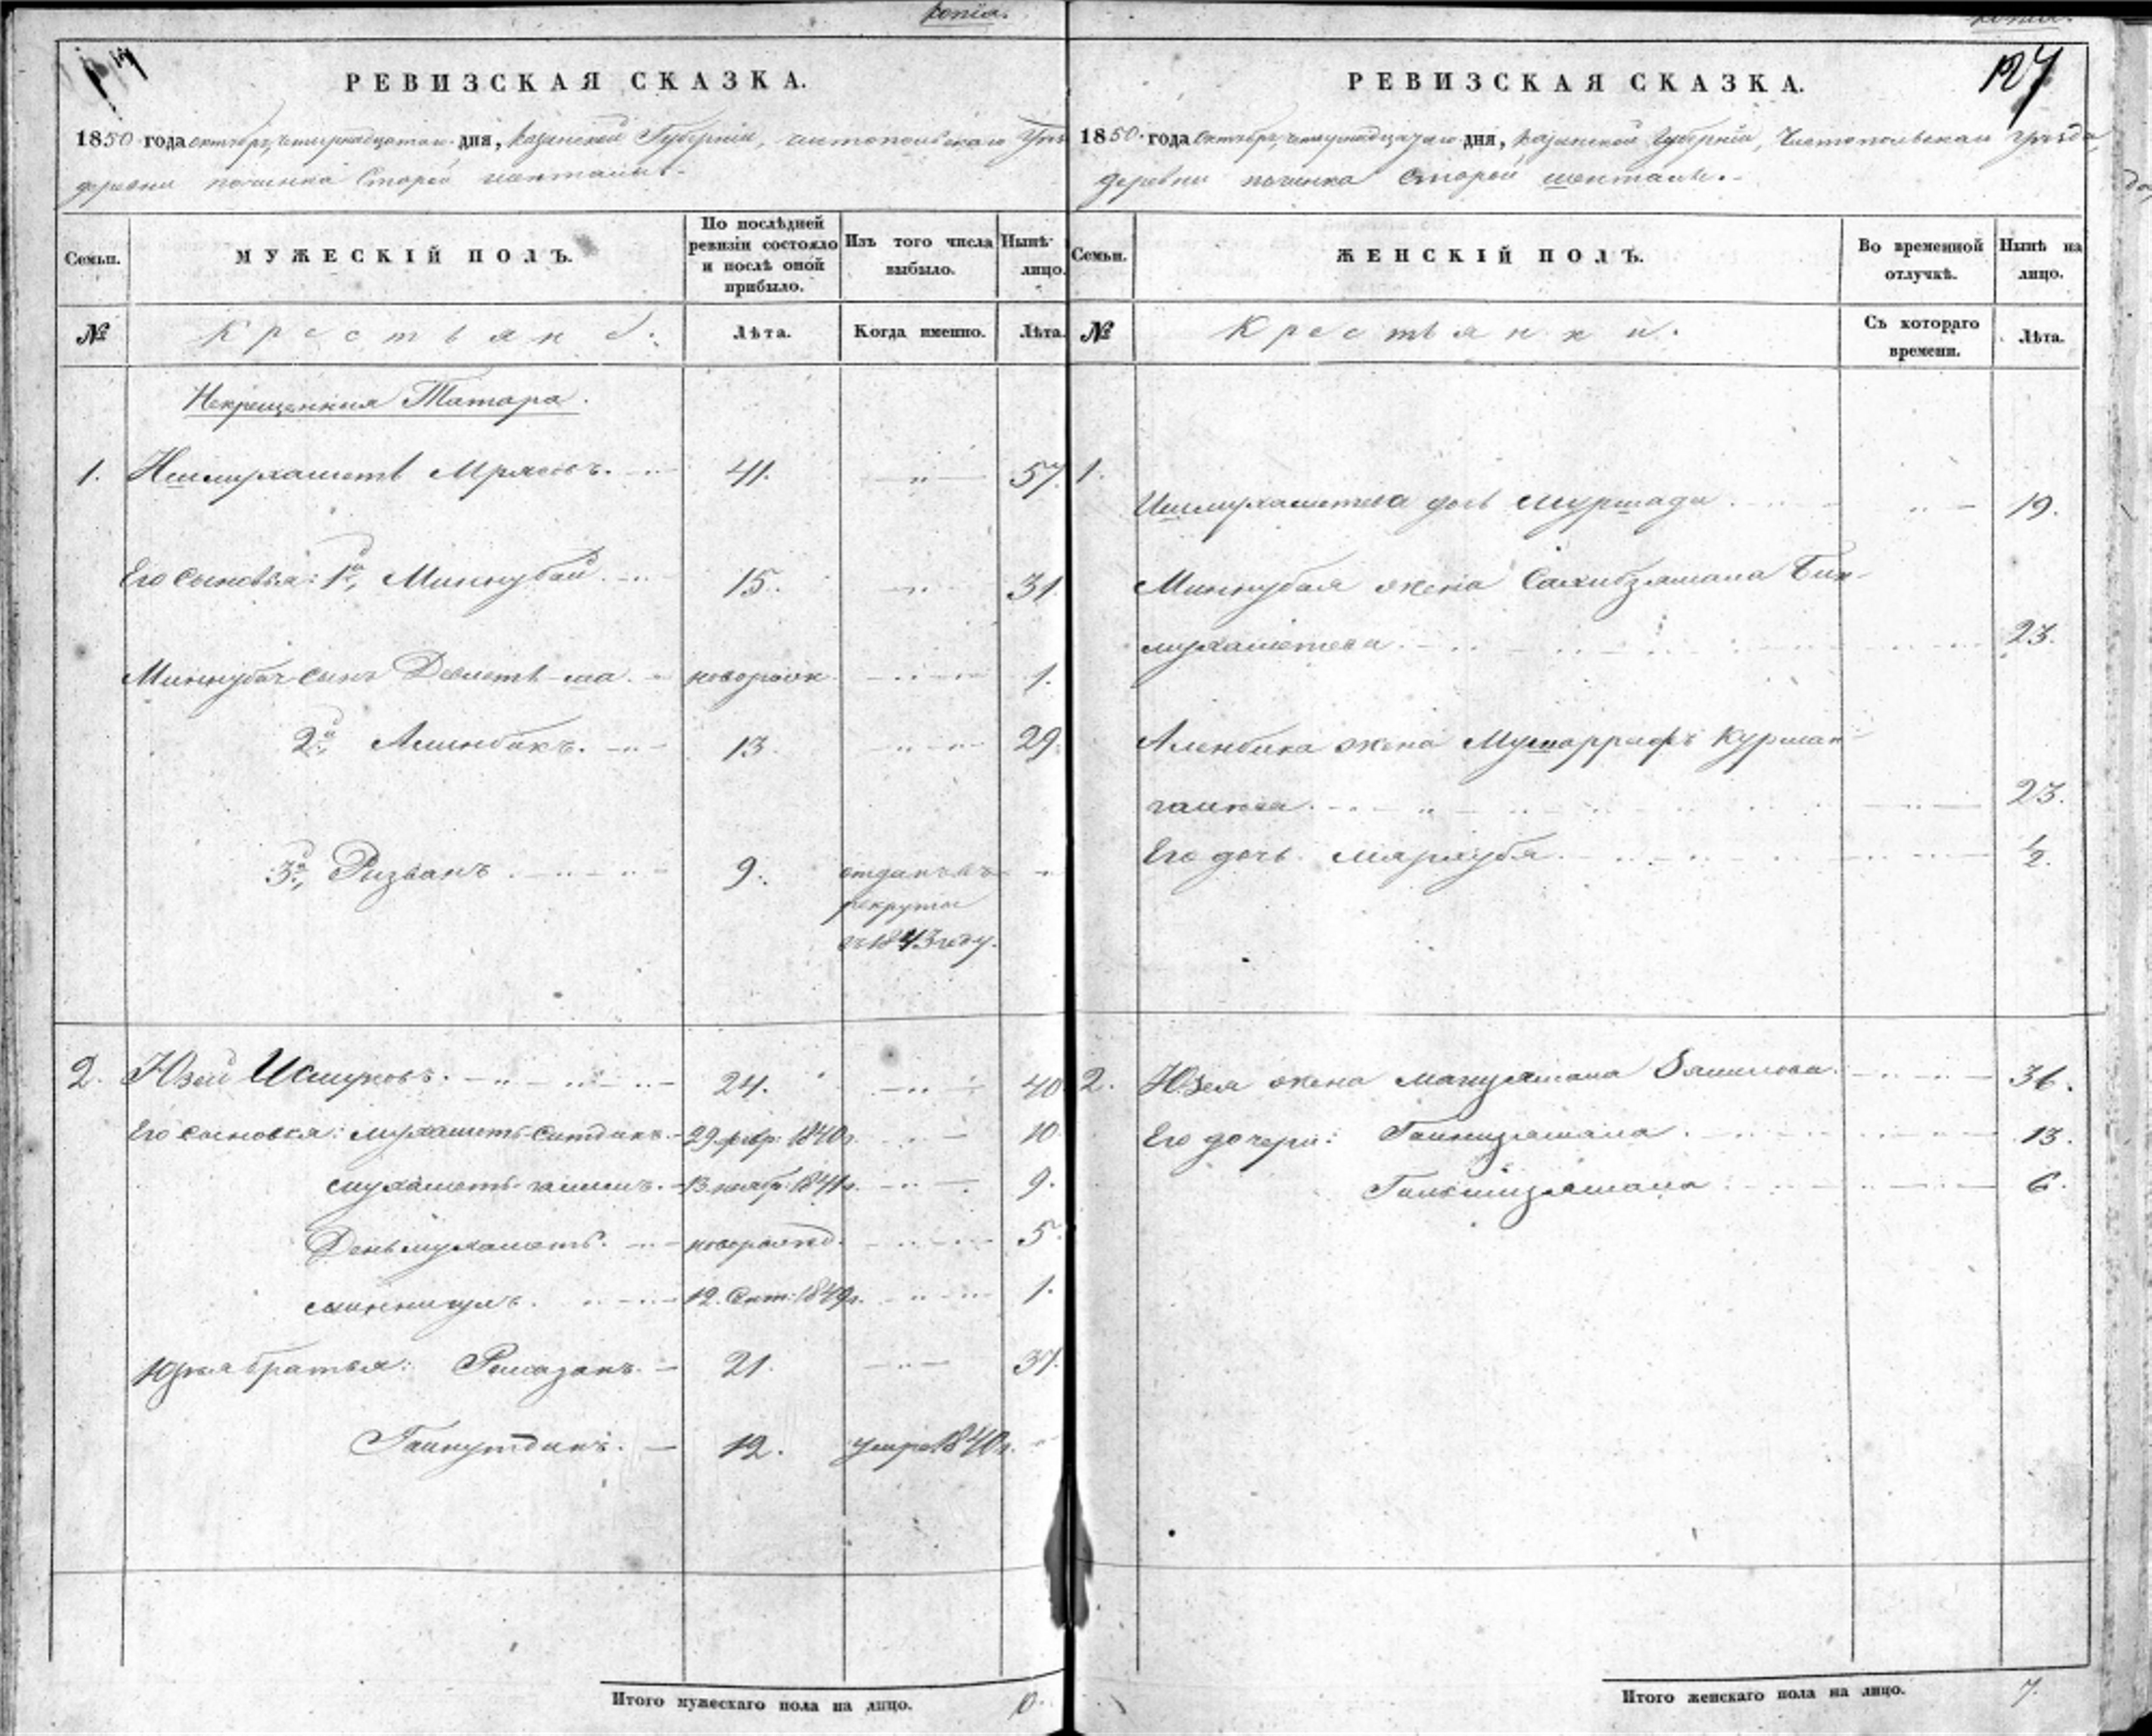 копія.
РЕВИЗСКАЯ СКАЗКА.
1850 года октября, четырнадцатаго дня, Казанской Губерніи, чистопольскаго Уѣз
деревни починка Старой шенталы.
Семьи. МУЖЕСКІЙ ПОЛЪ. По послѣдней ревизіи состояло и послѣ оной прибыло. Изъ того числа выбыло. Нынѣ лицо.
№ Крестьяне. Лѣта. Когда именно. Лѣта.
Некрещенныя Татара.
1. Ишмухаметь Мрясовъ. 41. 57.
Его сыновья: 1й, Миннубай. 15. 31.
Миннубая сынъ Девлетъ-ша. новорожд 1.
2й, Алинбикъ. 13. 29.
3й, Ризванъ 9. отданъ въ
рекруты
въ 1843 году.
2. Юзей Исмуковъ. 24. 40
Его сыновья: мухаметъ-ситдикъ. 29 февр: 1840г. 10.
мухаметъ-галимъ. 13 ноябр: 1841г. 9.
Деньмухаметъ. новорожд. 5.
миннигулъ. 12. Сент: 1849г. 1.
Юзея братья: Рамазанъ. 21. 37.
Гайнутдинъ. 12. умре 1840г.
Итого мужескаго пола на лицо. 10.
копія.
127
РЕВИЗСКАЯ СКАЗКА.
1850 года Октября, четырнадцатаго дня, Казанской Губерніи, Чистопольскаго Уѣзда,
деревни починка Старой шенталы.
Семьи. ЖЕНСКІЙ ПОЛЪ. Во временной отлучкѣ. Нынѣ на лицо.
№ Крестьянки. Съ котораго времени. Лѣта.
1.
Ишмухаметева дочь муршада 19.
Миннубая жена Сахибзямала Бик-
мухаметева 23.
Аленбика жена Мушаррафъ Курман-
галиева 23.
Его дочь. Мархубя ½.
2. Юзея жена Магизямала Зямилова. 36.
Его дочери: Гайнизямала. 13.
Гильмизямала 6.
Итого женскаго пола на лицо. 7.